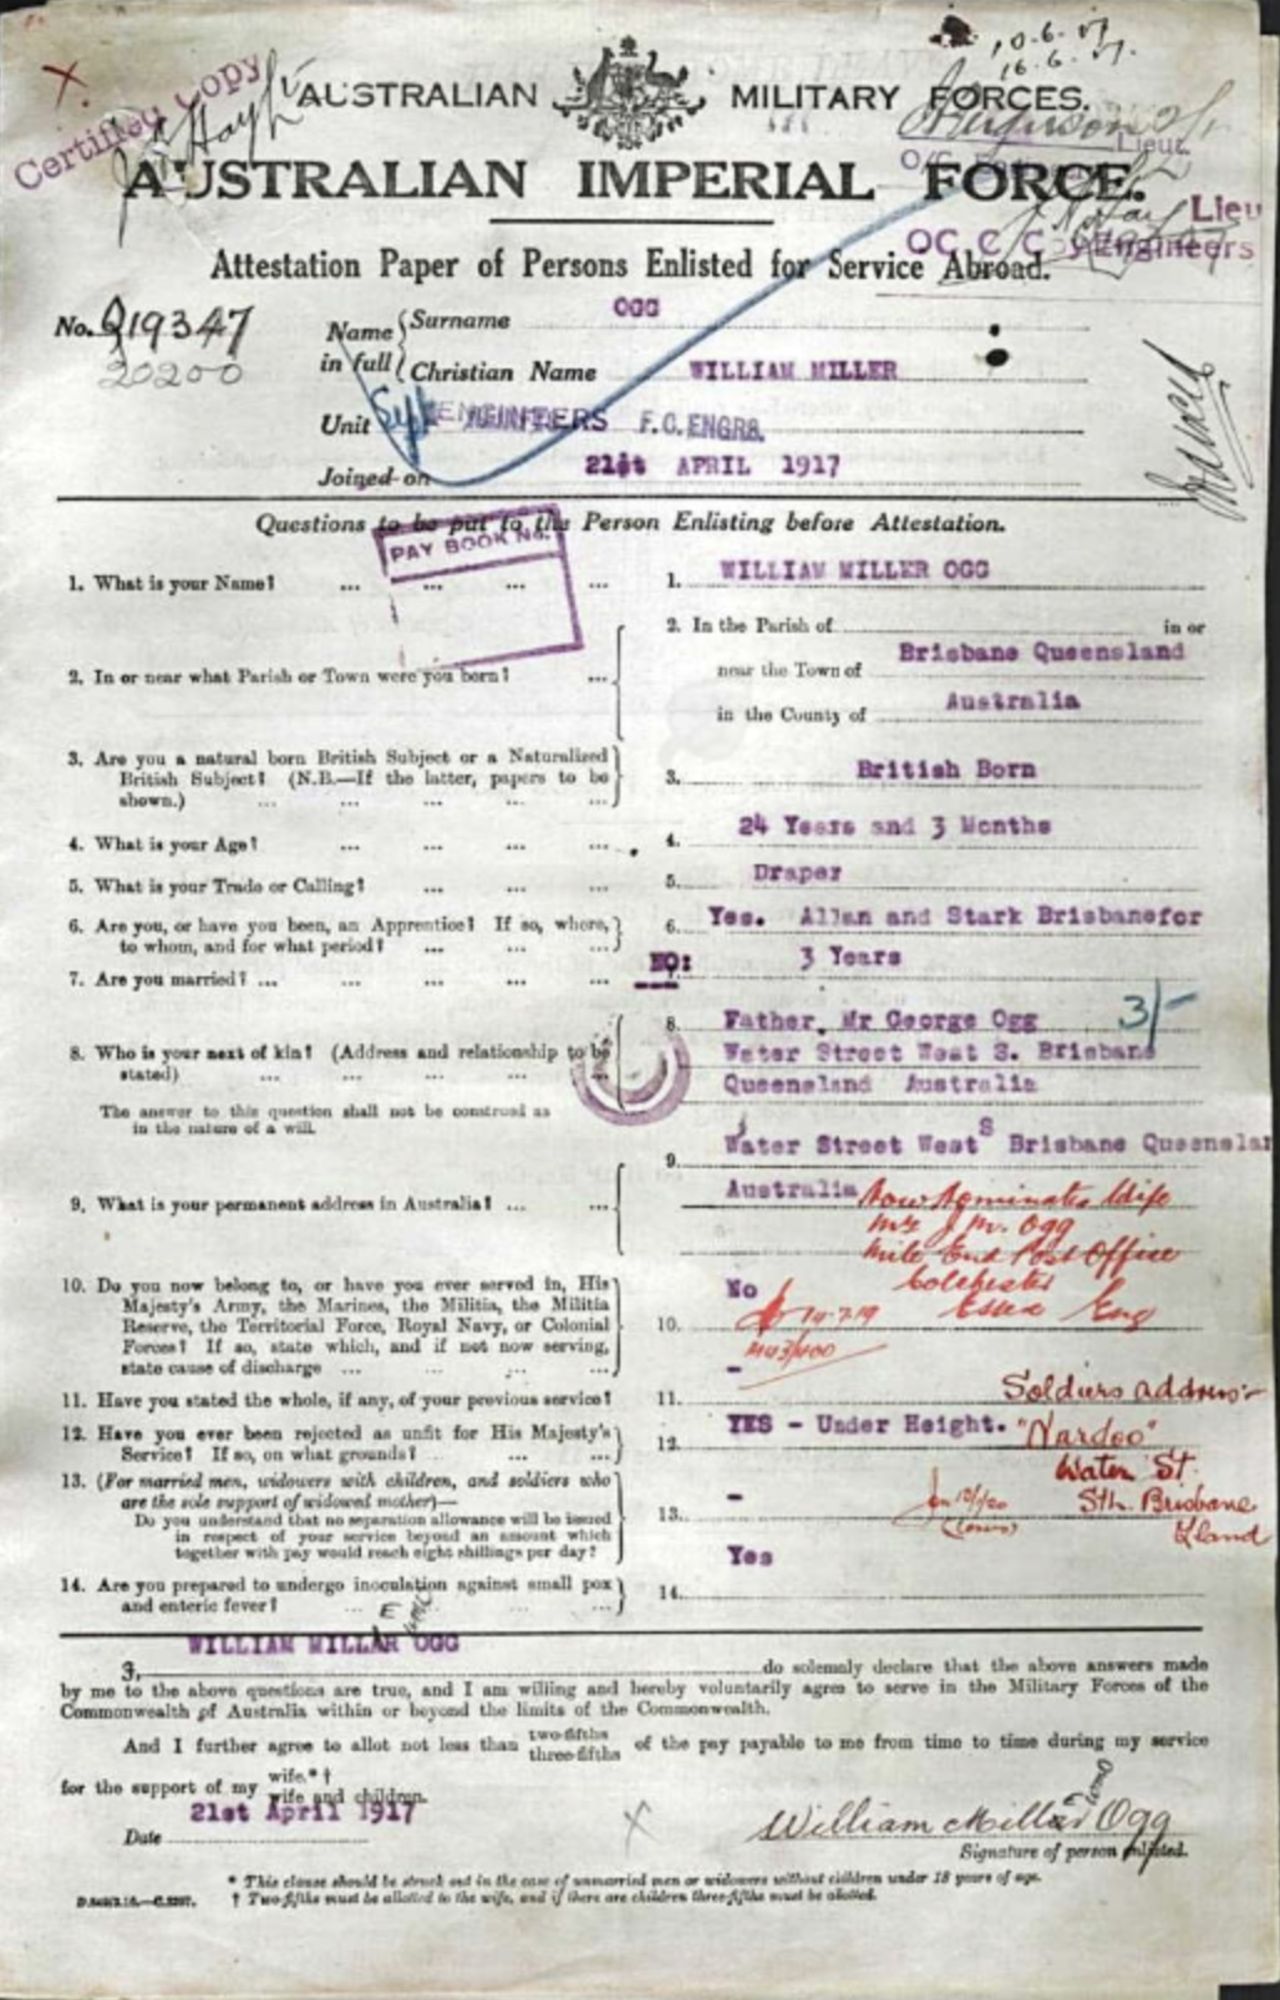 10.6.17
16.6.17.
Certified Copy
AUSTRALIAN MILITARY FORCES.
Lieut.
AUSTRALIAN IMPERIAL FORCE.
Lieu
OC C C Engineers
Attestation Paper of Persons Enlisted for Service Abroad.
No. Q19347
20200
Name in full { Surname OGG
Christian Name WILLIAM MILLER
Unit F.C.ENGRS.
Joined on 21st APRIL 1917
Questions to be put to the Person Enlisting before Attestation.
PAY BOOK No.
1. What is your Name? ... ... ... ... 1. WILLIAM MILLER OGG
2. In or near what Parish or Town were you born? ... 2. In the Parish of in or
near the Town of Brisbane Queensland
in the County of Australia
3. Are you a natural born British Subject or a Naturalized
British Subject? (N.B.—If the latter, papers to be
shown.) ... ... ... ... ... 3. British Born
4. What is your Age? ... ... ... ... 4. 24 Years and 3 Months
5. What is your Trade or Calling? ... ... ... 5. Draper
6. Are you, or have you been, an Apprentice? If so, where,
to whom, and for what period? ... ... ... 6. Yes. Allan and Stark Brisbanefor
3 Years
7. Are you married? ... ... ... ... ... NO:
8. Who is your next of kin? (Address and relationship to be
stated) ... ... ... ... ...
The answer to this question shall not be construed as
in the nature of a will.
8. Father. Mr George Ogg 3/-
Water Street West S. Brisbane
Queensland Australia
9. What is your permanent address in Australia? ... ...
9. Water Street West S Brisbane Queenslan
Australia
Now Nominates Wife
Mrs J. M. Ogg
Mile End Post Office
Colchester
Essex Eng
10. Do you now belong to, or have you ever served in, His
Majesty's Army, the Marines, the Militia, the Militia
Reserve, the Territorial Force, Royal Navy, or Colonial
Forces? If so, state which, and if not now serving,
state cause of discharge ... ... ... ...
10. No
14-7-19
11. Have you stated the whole, if any, of your previous service? 11. -
Soldiers address:-
12. Have you ever been rejected as unfit for His Majesty's
Service? If so, on what grounds? ... ... 12. YES - Under Height.
"Nardoo"
Water St.
Sth. Brisbane
Qland
13. (For married men, widowers with children, and soldiers who
are the sole support of widowed mother)—
Do you understand that no separation allowance will be issued
in respect of your service beyond an amount which
together with pay would reach eight shillings per day?
13. -
14. Are you prepared to undergo inoculation against small pox
and enteric fever? ... ... ... ... 14. Yes
E
WILLIAM MILLAR OGG
I, do solemnly declare that the above answers made
by me to the above questions are true, and I am willing and hereby voluntarily agree to serve in the Military Forces of the
Commonwealth of Australia within or beyond the limits of the Commonwealth.
And I further agree to allot not less than two-fifths three-fifths of the pay payable to me from time to time during my service
for the support of my wife.* † wife and children.
Date 21st April 1917
William Millar Ogg
E
Signature of person enlisted.
* This clause should be struck out in the case of unmarried men or widowers without children under 18 years of age.
† Two-fifths must be allotted to the wife, and if there are children three-fifths must be allotted.